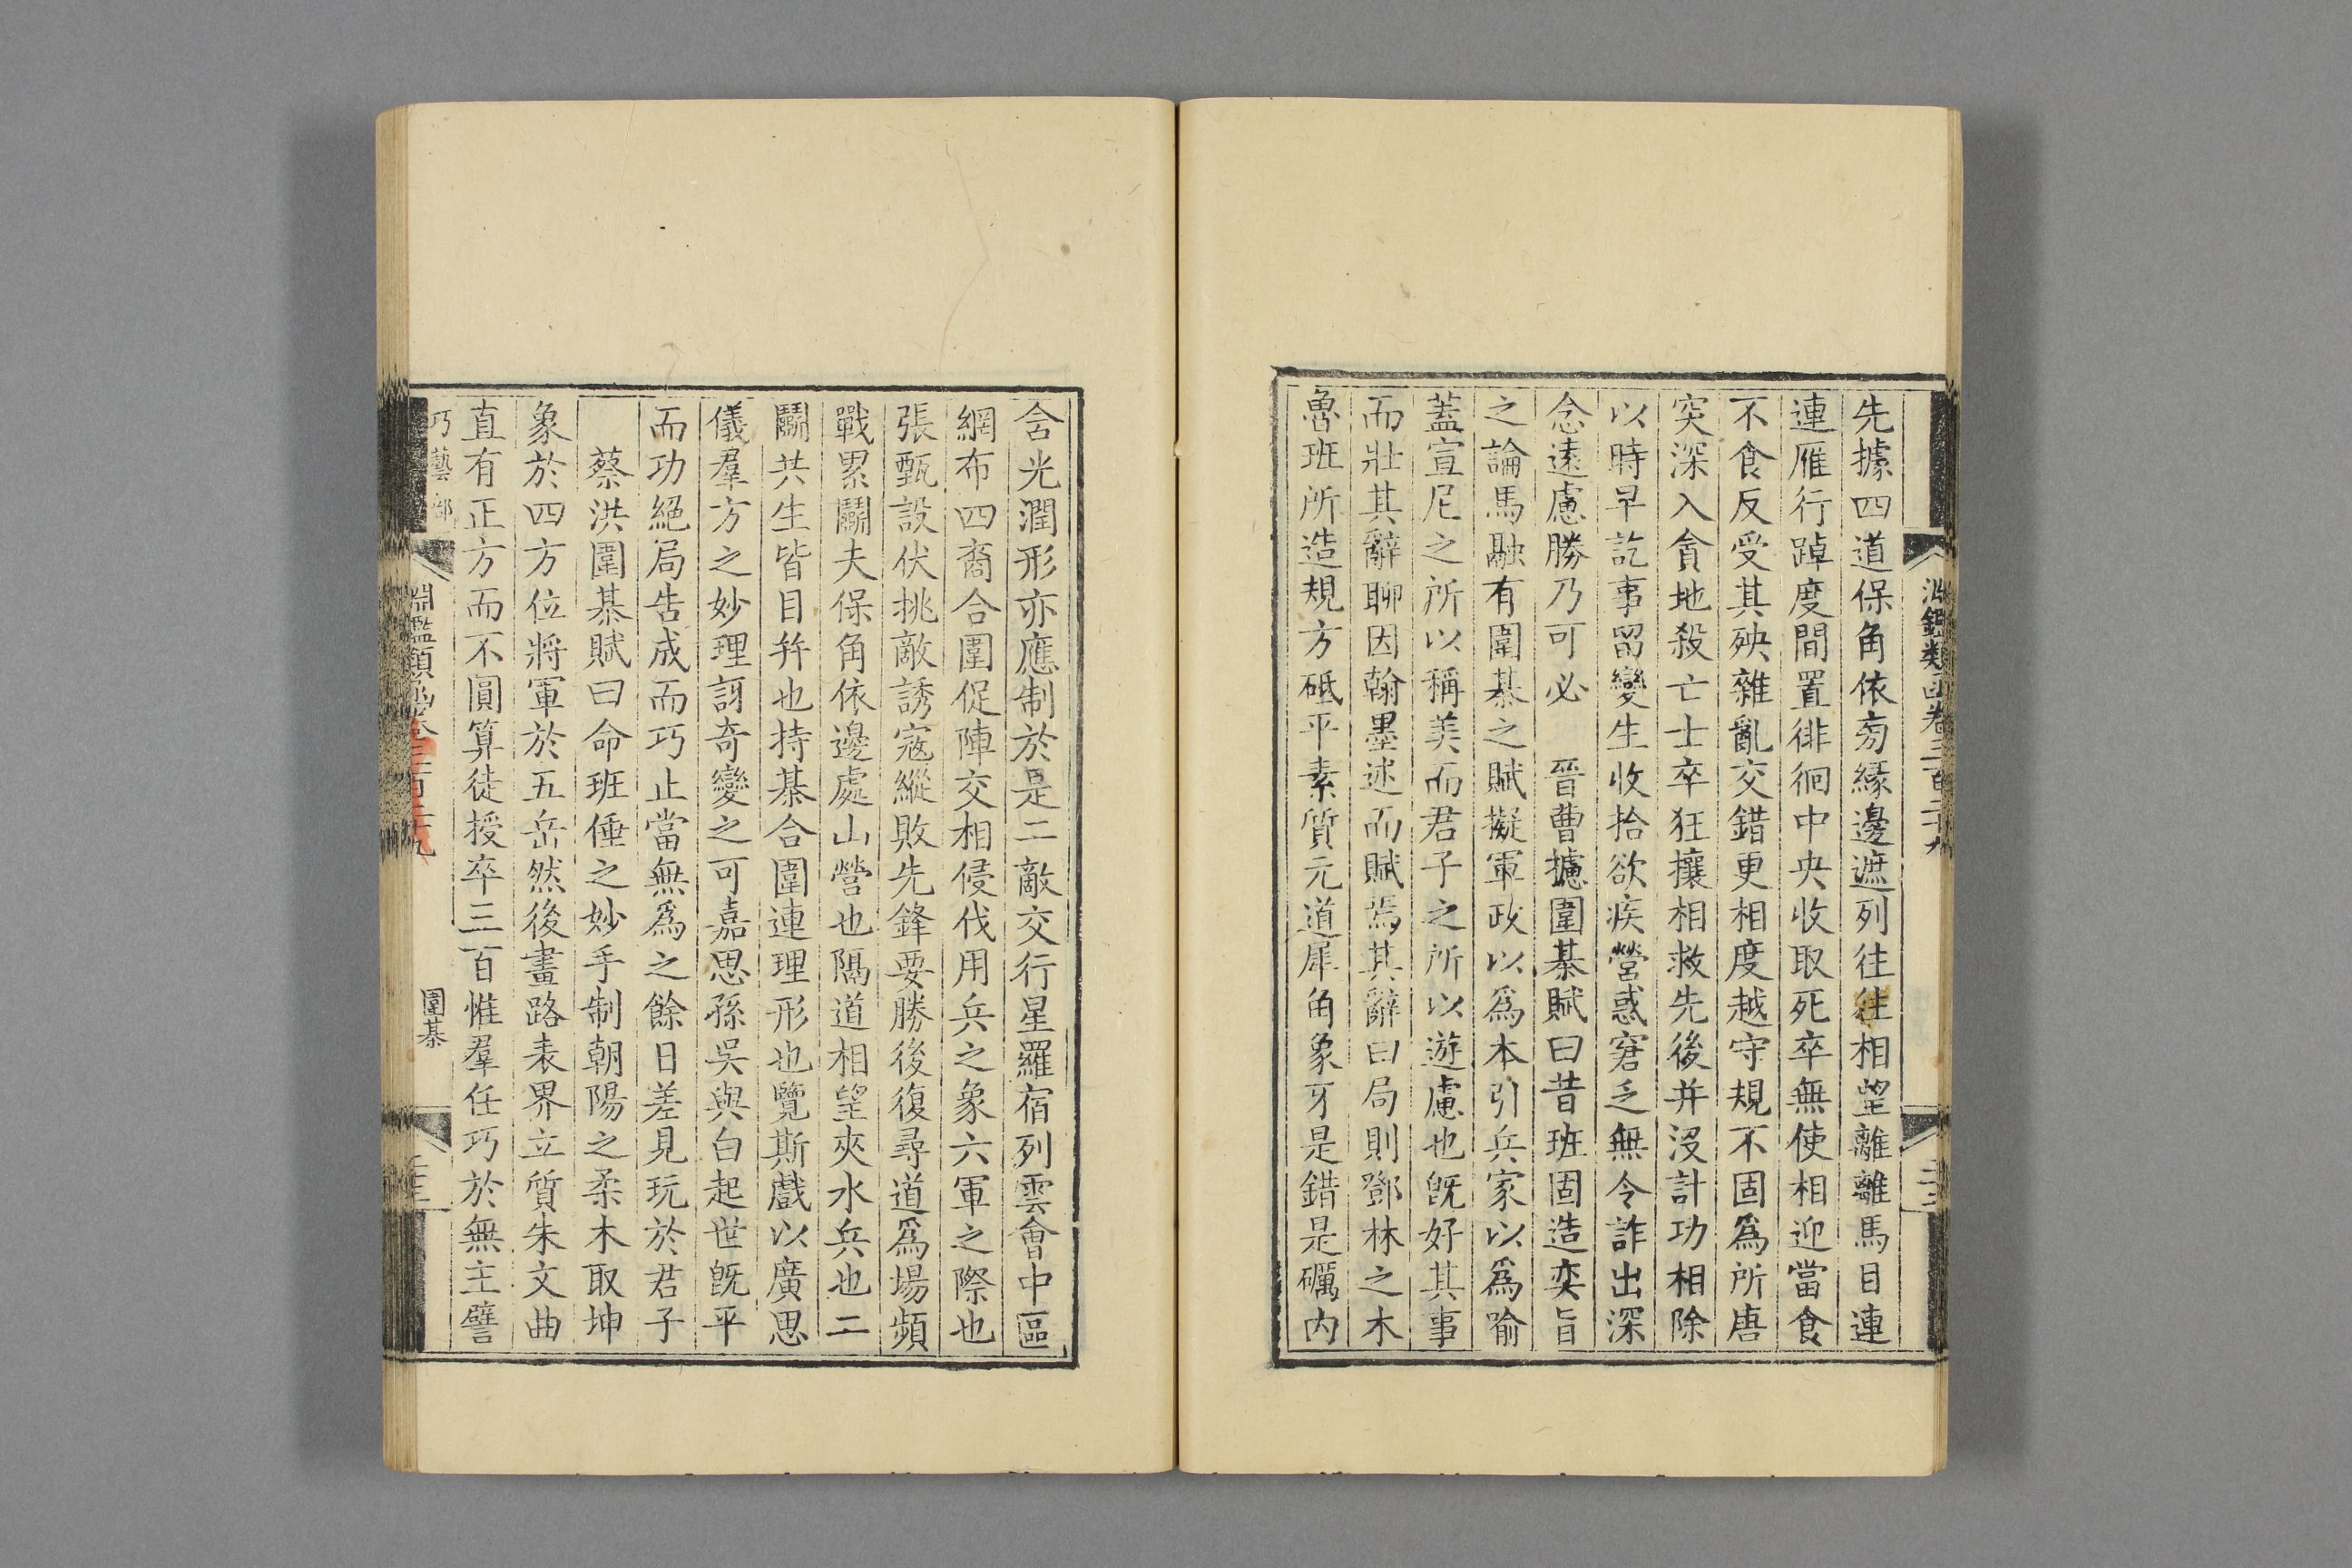 淵鑑類函卷三百二十九
先據四道保角依旁緣邊遮列往往相望離離馬目連
連雁行踔度間置徘徊中央收取死卒無使相迎當食
不食反受其殃雜亂交錯更相度越守規不固爲所唐
突深入貪地殺亡士卒狂攘相救先後并沒計功相除
以時早訖事留變生收拾欲疾營惑窘乏無令詐出深
念遠慮勝乃可必　晉曹攄圍棊賦曰昔班固造奕旨
之論馬融有圍棊之賦擬軍政以爲本引兵家以爲喻
蓋宣尼之所以稱美而君子之所以遊慮也旣好其事
而壯其辭聊因翰墨述而賦焉其辭曰局則鄧林之木
魯班所造規方砥平素質元道犀角象牙是錯是礪內
含光潤形亦應制於是二敵交行星羅宿列雲會中區
網布四裔合圍促陣交相侵伐用兵之象六軍之際也
張甄設伏挑敵誘寇縱敗先鋒要勝後復尋道爲場頻
戰累鬭夫保角依邊處山營也隔道相望夾水兵也二
鬭共生皆目幷也持棊合圍連理形也覽斯戲以廣思
儀羣方之妙理訝奇變之可嘉思孫吳與白起世旣平
而功絕局告成而巧止當無爲之餘日差見玩於君子
蔡洪圍棊賦曰命班倕之妙手制朝陽之柔木取坤
象於四方位將軍於五岳然後畫路表界立質朱文曲
直有正方而不圓算徒授卒三百惟羣任巧於無主譬
巧藝部
淵鑑類函卷三百二十九
圍棊